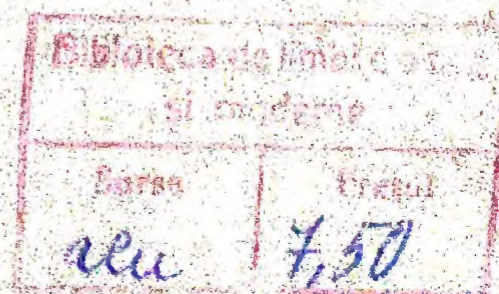 Biblioteca de limbi
și moderne
Sursa Prețul
7,50